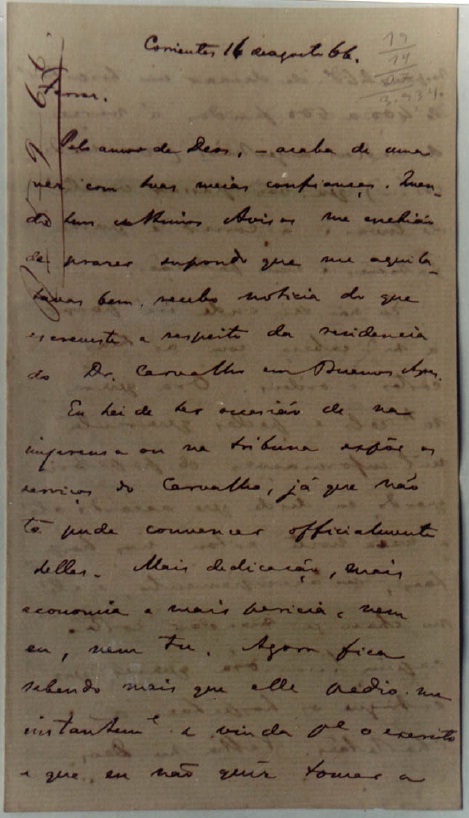 Corrientes 16 de agosto 66.
19
14
3.934.
Ferraz.
Pelo amor de Deos, – acaba de uma
vez com tuas meias confianças. Quan-
do teus ultimos Avisos me enchião
de prazer suppondo que me aquila-
tavas bem, recebo noticia do que
escreveste a respeito da residencia
do Dr. Carvalho em Buenos Ayres.
Eu hei de ter occasião de na
imprensa ou na tribuna expôr os
serviços do Carvalho, já que não
te pude convencer officialmente
delles. Mais dedicação, mais
economia e mais pericia, nem
eu, nem tu. Agora fica
sabendo mais que elle pedio-me
instantemte a vinda pa o exercito
e que eu não quiz tomar a